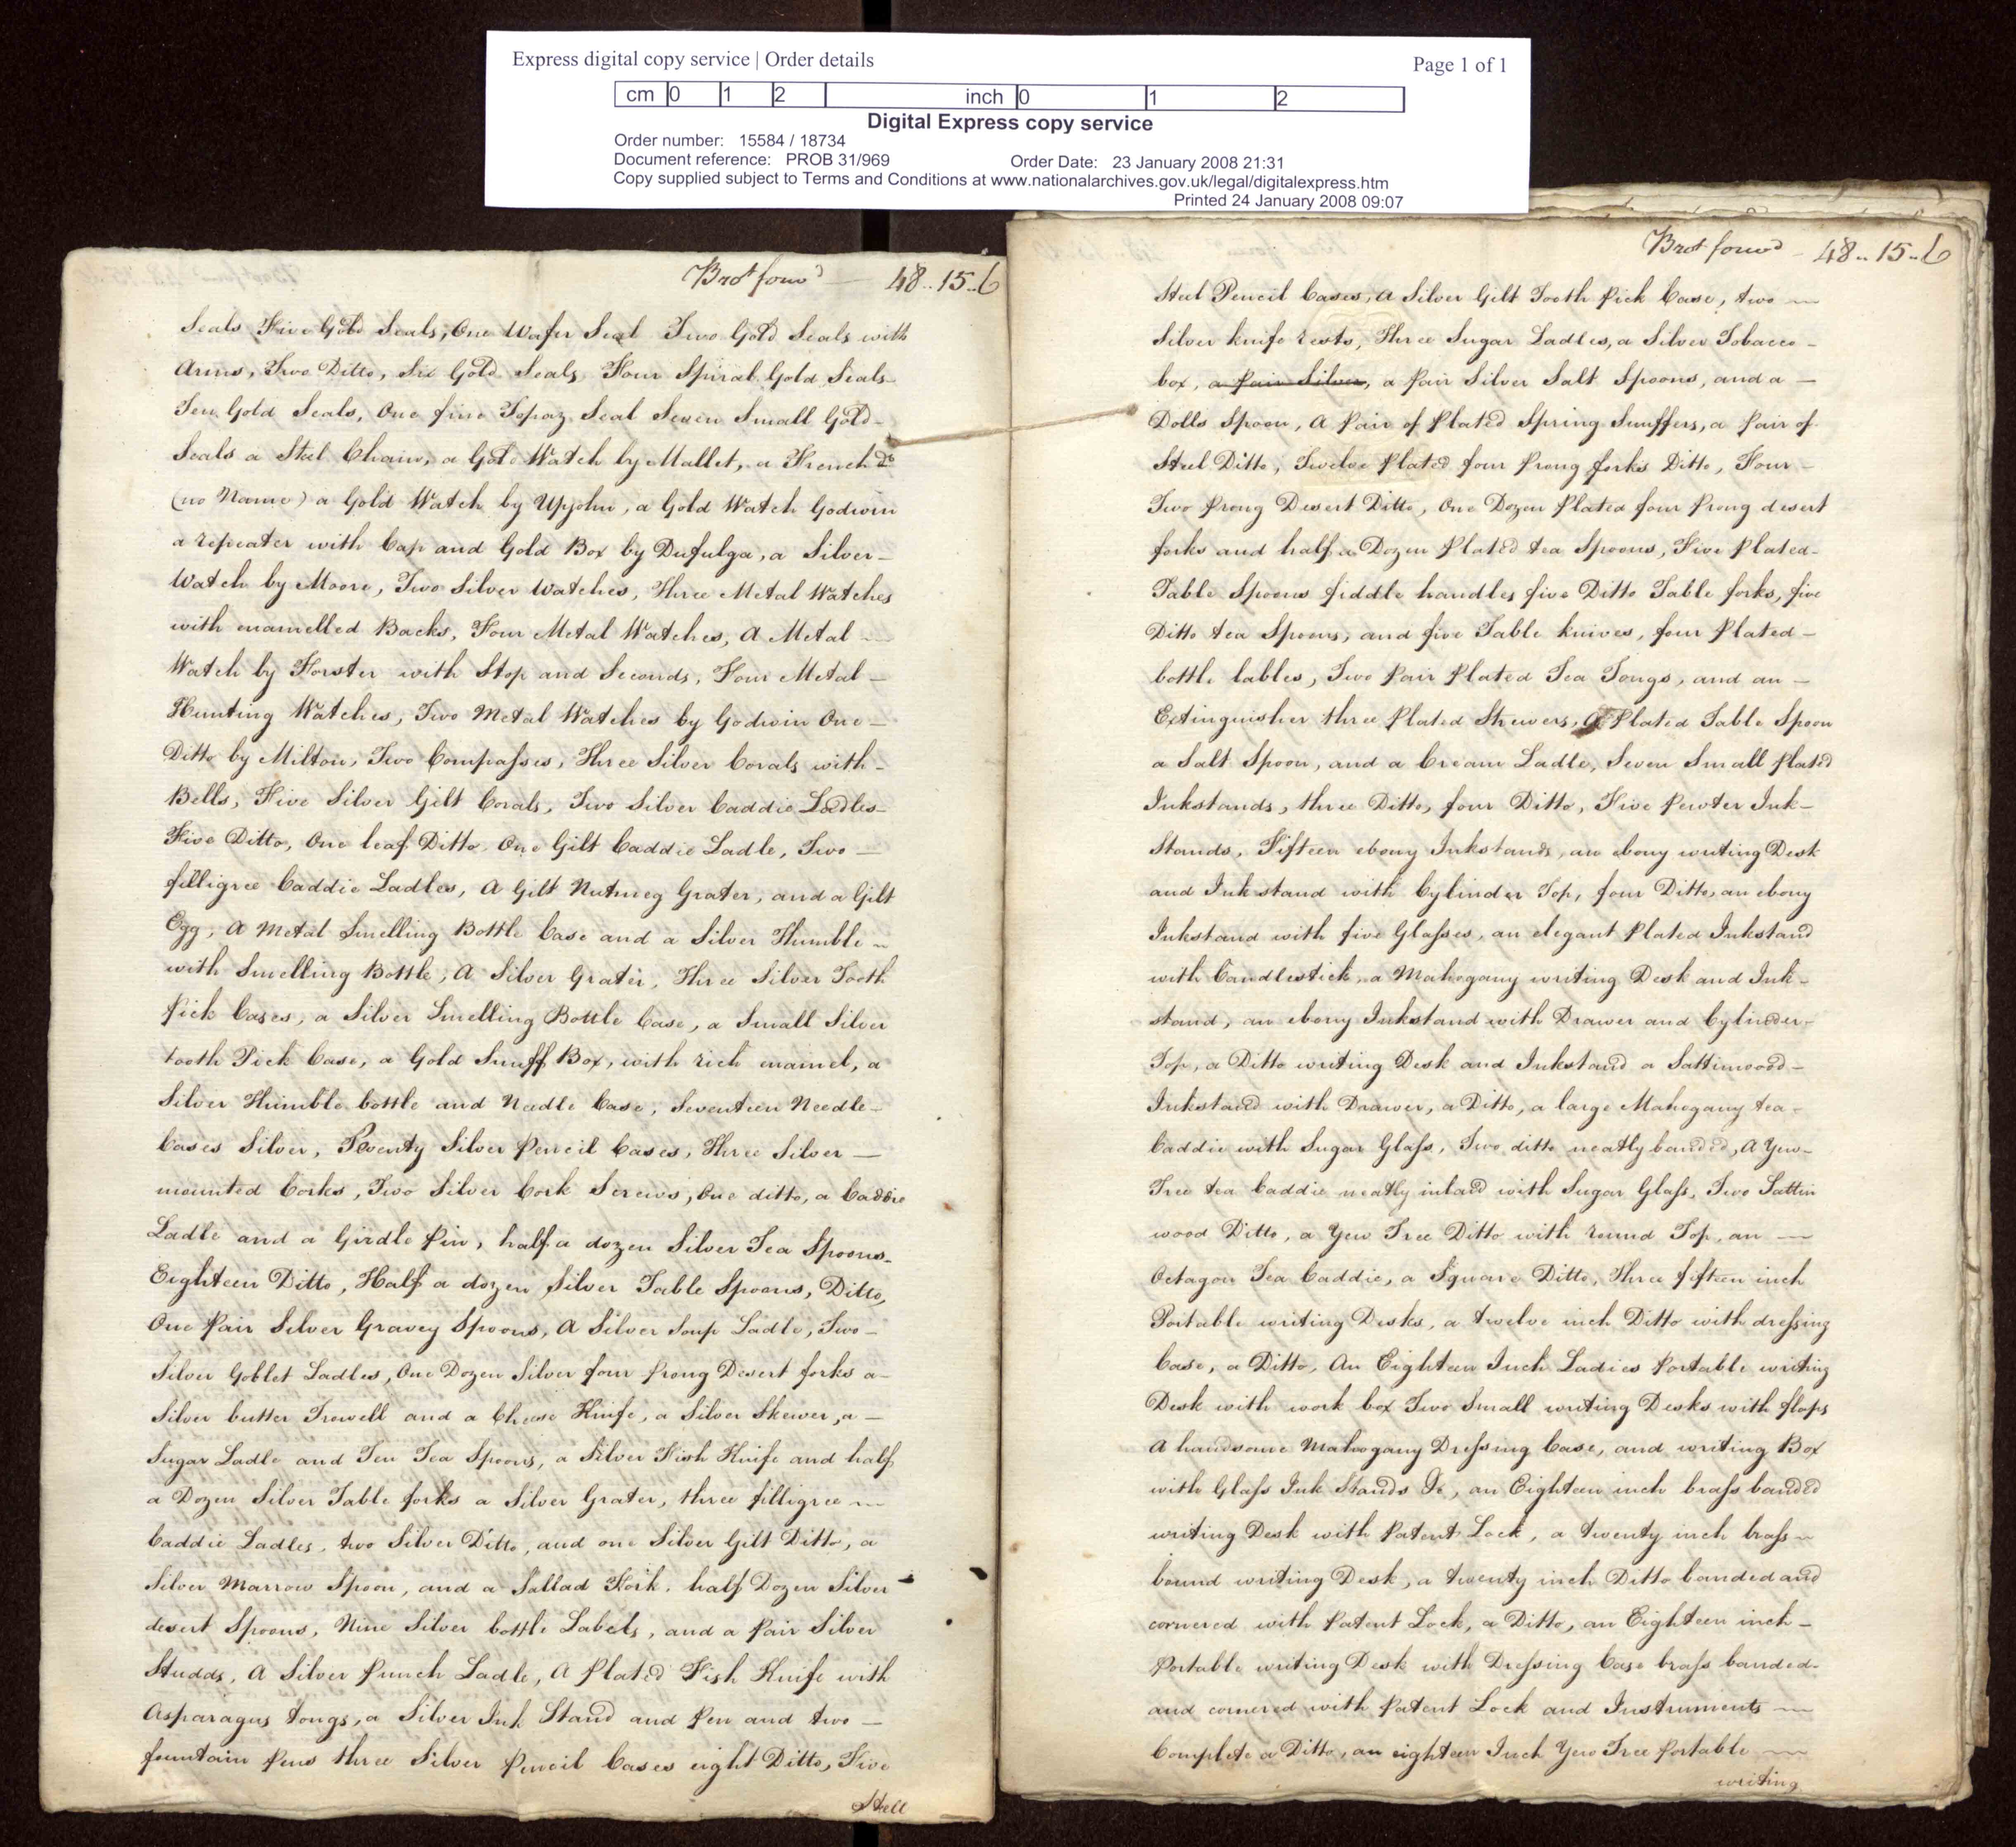 Express digital copy service | Order details
Page 1 of 1
cm 0 1 2 inch 0 1 2
Digital Express copy service
Order number: 15584 / 18734
Document reference: PROB 31/969 Order Date: 23 January 2008 21:31
Copy supplied subject to Terms and Conditions at www.nationalarchives.gov.uk/legal/digitalexpress.htm
Printed 24 January 2008 09:07
Brot forwd — 48..15..6
Seals Five Gold Seals, One Wafer Seal Two Gold Seals with
Arms, Two Ditto, Six Gold Seals, Four Spiral Gold Seals-
Ten Gold Seals, One fine Topaz Seal Seven Small Gold-
Seals a Steel Chain, a Gold Watch by Mallet, a French Do
(no Name) a Gold Watch by Upjohn, a Gold Watch Godwin
a repeater with Cap and Gold Box by Dufulga, a Silver-
Watch by Moore, Two Silver Watches, Three Metal Watches
with enamelled Backs, Four Metal Watches, A Metal —
Watch by Forster with Stop and Seconds, Four Metal —
Hunting Watches, Two Metal Watches by Godwin One-
Ditto by Milton, Two Compasses, Three Silver Corals with-
Bells, Five Silver Gilt Corals, Two Silver Caddie Ladles-
Five Ditto, One leaf Ditto One Gilt Caddie Ladle, Two —
filligree Caddie Ladles, A Gilt Nutmeg Grater, and a Gilt
Egg, A Metal Smelling Bottle Case and a Silver Thumble ~
with Smelling Bottle, A Silver Grater, Three Silver Tooth
Pick Cases, a Silver Smelling Bottle Case, a Small Silver
tooth Pick Case, a Gold Snuff Box, with rich enamel, a
Silver Thimble bottle and Needle Case, Seventeen Needle-
Cases Silver, Twenty Silver Pencil Cases, Three Silver —
mounted Corks, Two Silver Cork Screws, One ditto, a Caddie
Ladle and a Girdle Pin, half a dozen Silver Tea Spoons-
Eighteen Ditto, Half a dozen Silver Table Spoons, Ditto,
One Pair Silver Gravey Spoons, A Silver Soup Ladle, Two-
Silver Goblet Ladles, One Dozen Silver four Prong Desert forks a-
Silver butter Trowell and a Cheese Knife, a Silver Skewer, a —
Sugar Ladle and Ten Tea Spoons, a Silver Fish Knife and half
a Dozen Silver Table forks a Silver Grater, three filligree ~
Caddie Ladles, two Silver Ditto, and one Silver Gilt Ditto, a
Silver Marrow Spoon, and a Sallad Fork, half Dozen Silver-
desert Spoons, Nine Silver bottle Labels, and a Pair Silver
Studds, A Silver Punch Ladle, A Plated Fish Knife with
Asparagus tongs, a Silver Ink Stand and Pen and two —
fountain Pens three Silver Pencil Cases eight Ditto, Five
Steel
Brot forwd — 48..15..6
Steel Pencil Cases, a Silver Gilt Tooth Pick Case, two ~
Silver knife rests, Three Sugar Ladles, a Silver Tobacco-
box, a Pair Silver, a Pair Silver Salt Spoons, and a —
Dolls Spoon, A Pair of Plated Spring Snuffers, a Pair of-
Steel Ditto, Twelve Plated four Prong forks Ditto, Four —
Two Prong Desert Ditto, One Dozen Plated four Prong desert
forks and half a Dozen Plated tea Spoons, Five Plated-
Table Spoons fiddle handles five Ditto Table forks, five
Ditto tea Spoons, and five Table knives, four Plated-
bottle lables, Two Pair Plated Tea Tongs, and an —
Extinguisher three Plated Skewers, a Plated Table Spoon
a Salt Spoon, and a Cream Ladle, Seven Small Plated
Inkstands, three Ditto, four Ditto, Five Pewter Ink-
Stands, Fifteen ebony Inkstands, an ebony writing Desk
and Ink stand with Cylinder Top, four Ditto, an ebony
Inkstand with five Glasses, an elegant Plated Inkstand
with Candlestick, a Mahogany writing Desk and Ink-
stand, an ebony Inkstand with Drawer and Cylinder-
Top, a Ditto writing Desk and Inkstand a Sattinwood-
Inkstand with Drawer, a Ditto, a large Mahogany tea-
Caddie with Sugar Glass, Two ditto neatly banded, A Yew-
Tree tea Caddie neatly inlaid with Sugar Glass, Two Sattin
wood Ditto, a Yew Tree Ditto with round Top, an —
Octagon Tea Caddie, a Square Ditto, Three fifteen inch
Portable writing Desks, a twelve inch Ditto with dressing
Case, a Ditto, An Eighteen Inch Ladies Portable writing
Desk with work box Two Small writing Desks with flaps
A handsome Mahogany Dressing Case, and writing Box
with Glass Ink Stands &c, an Eighteen inch brass banded
writing Desk with Patent Lock, a twenty inch brass ~
bound writing Desk, a twenty inch Ditto banded and
cornered with Patent Lock, a Ditto, an Eighteen inch-
Portable writing Desk with Dressing Case brass banded-
and cornered with Patent Lock and Instruments ~
Complete a Ditto, an eighteen Inch Yew Tree Portable ~
writing